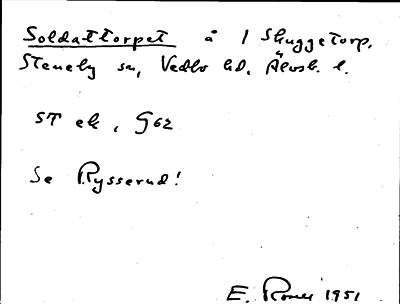 Soldattorpet å 1 Skuggetorp,
Steneby sn, Vedbo hd, Älvsb. l.
ST ek, G62
Se Rysserud!
E. 1951